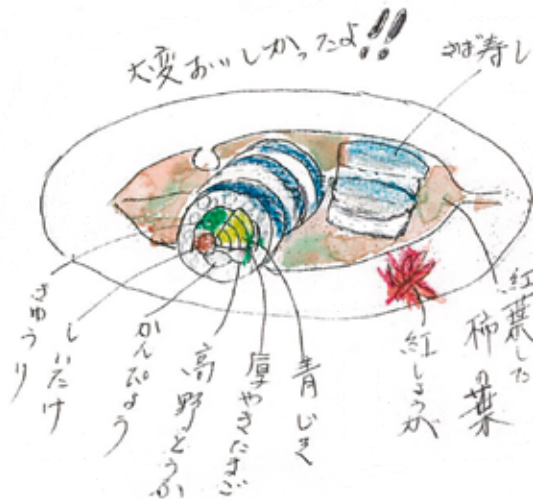 大変おいしかったよ!!
さば寿し
紅葉した
柿の葉
紅しょうが
青じそ
厚やきたまご
高野どうふ
かんぴょう
しいたけ
きゅうり